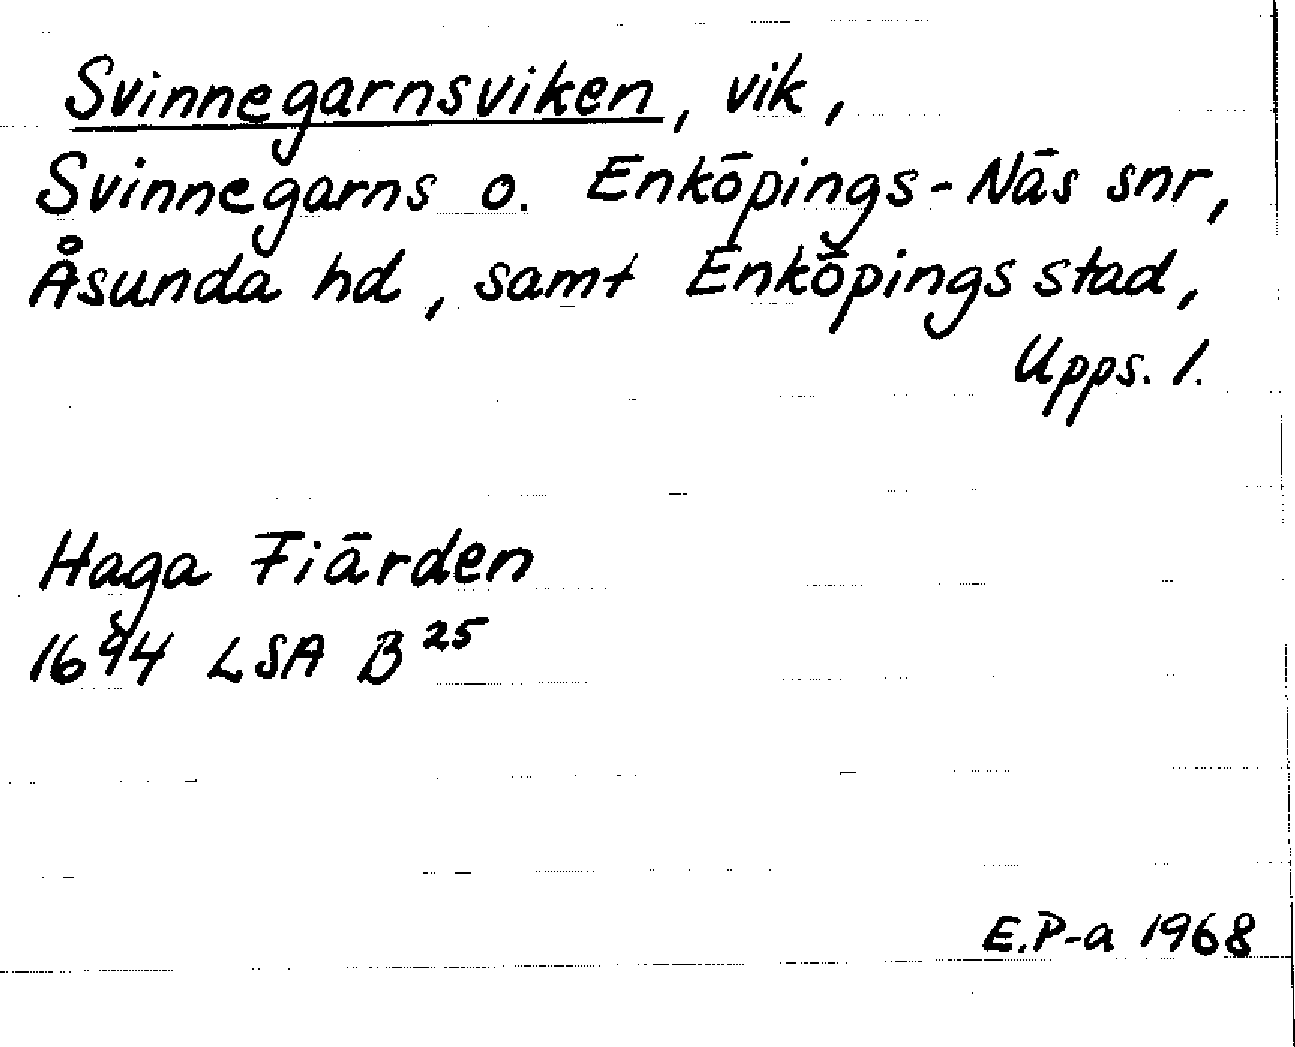 Svinnegarnsviken, vik,
Svinnegarns o. Enköpings-Näs snr,
Åsunda hd, samt Enköpings stad,
Upps. l.
Haga Fiärden
1694 LSA B²⁵
E.P-a 1968